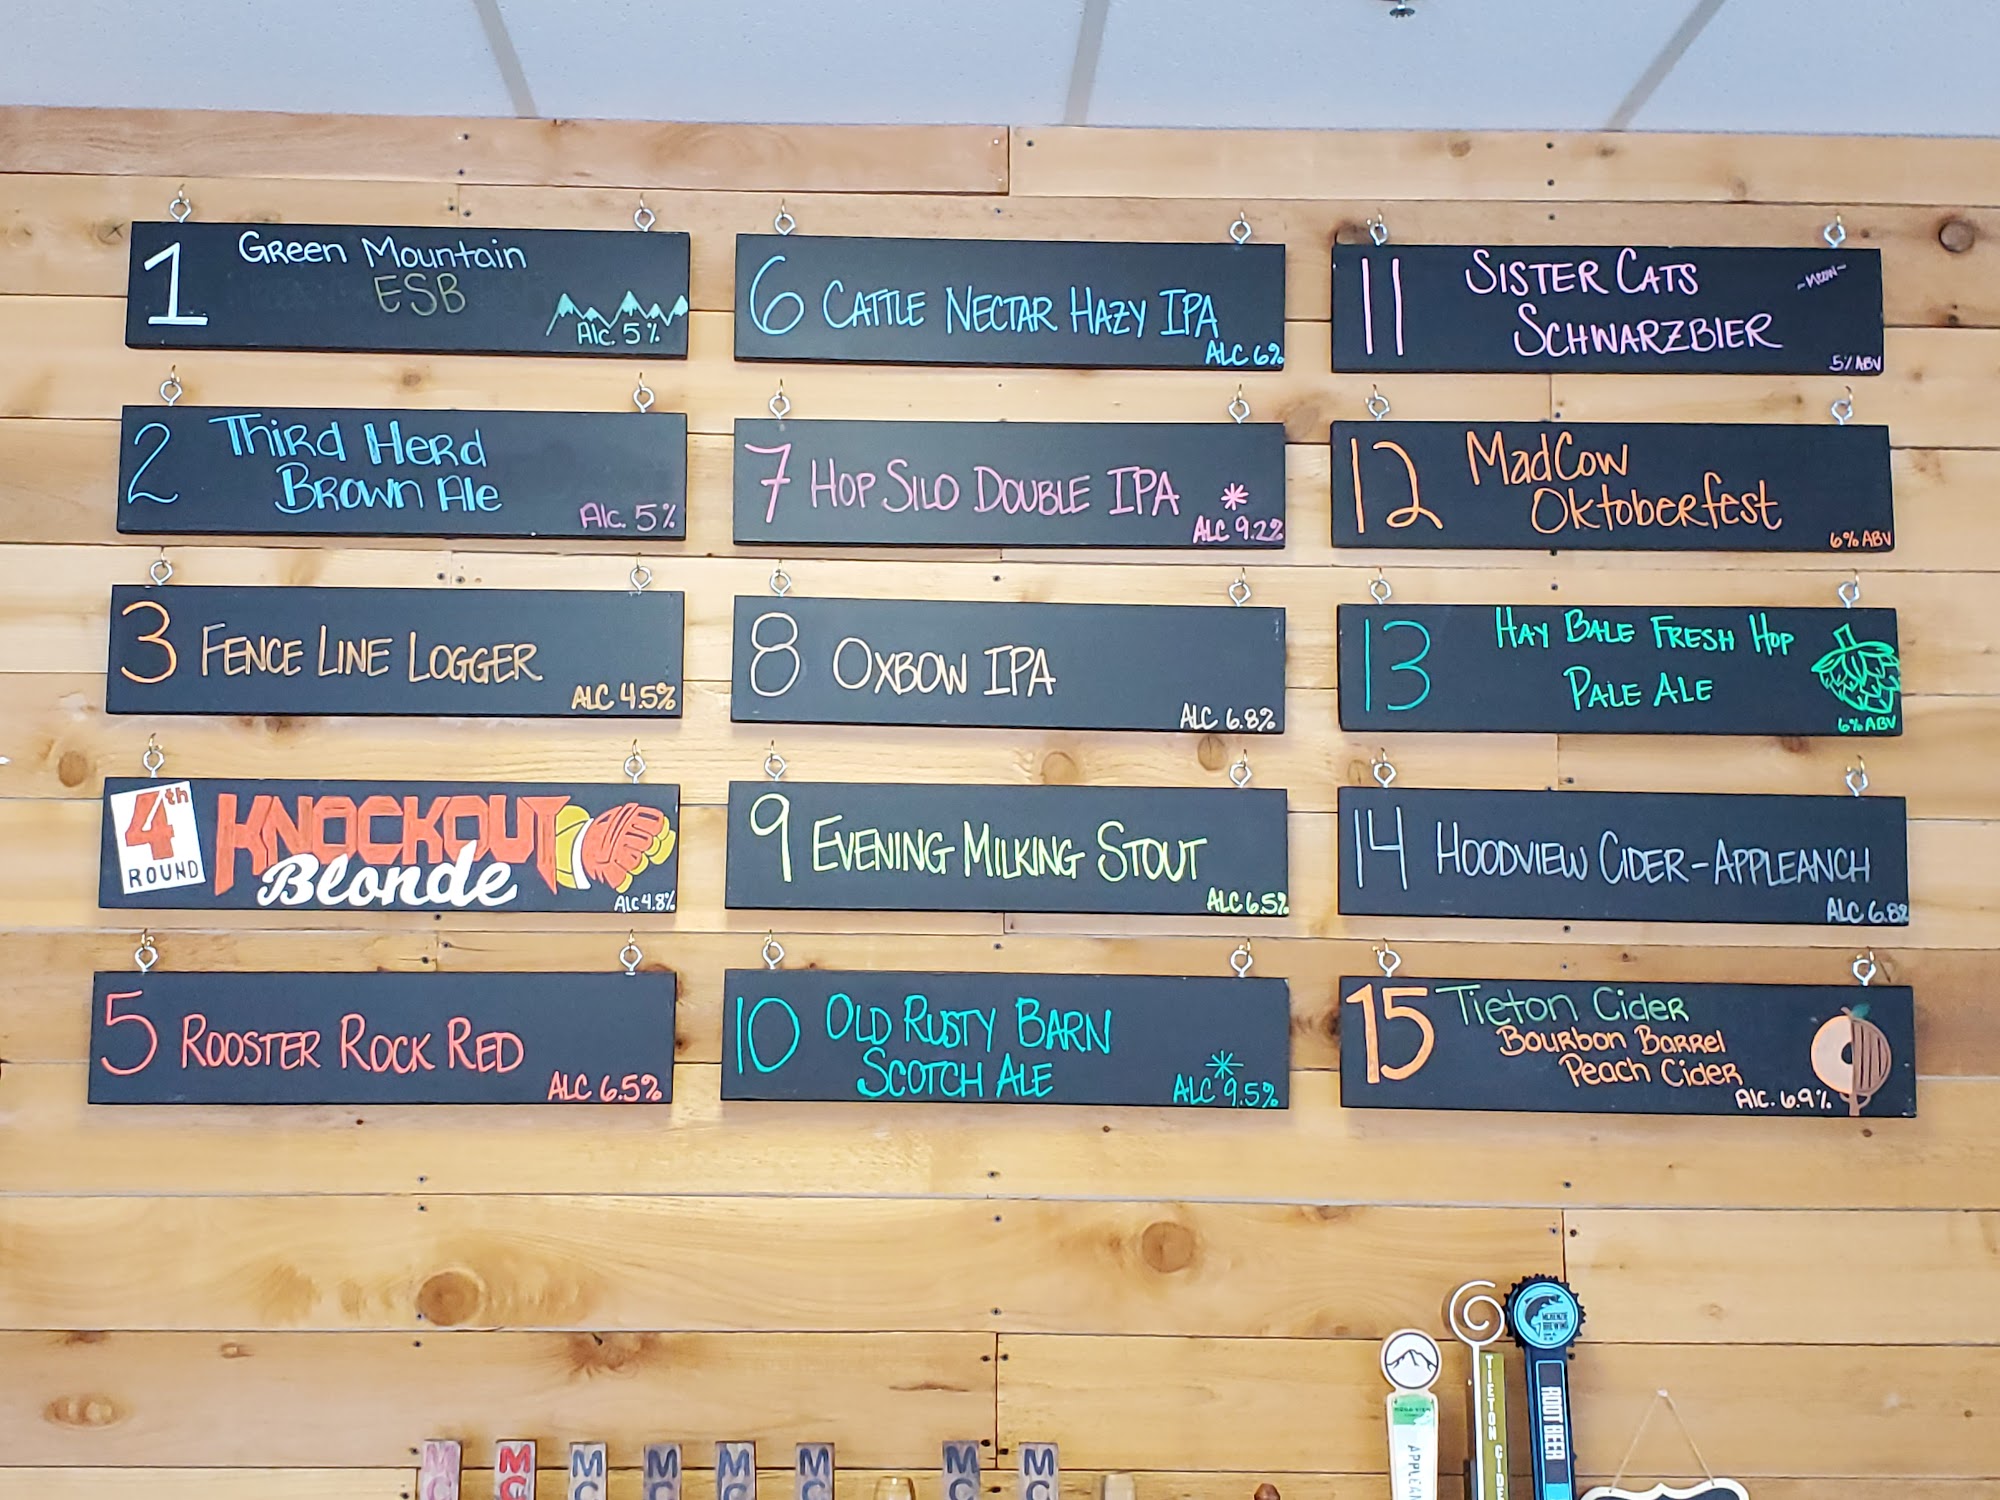 1
Green Mountain
ESB
Alc. 5%
2
Third Herd
Brown Ale
Alc. 5%
3 FENCE LINE LOGGER
ALC 4.5%
4th
ROUND
KNOCKOUT
Blonde
Alc 4.8%
5 ROOSTER ROCK RED
ALC 6.5%
6 CATTLE NECTAR HAZY IPA
ALC 6%
7 HOP SILO DOUBLE IPA *
ALC 9.2%
8 OXBOW IPA
ALC 6.8%
9 EVENING MILKING STOUT
ALC 6.5%
10
OLD RUSTY BARN
SCOTCH ALE *
ALC 9.5%
11
SISTER CATS
~meow~
SCHWARZBIER
5% ABV
12
MadCow
Oktoberfest
6% ABV
13
HAY BALE FRESH HOP
PALE ALE
6% ABV
14 HOODVIEW CIDER-APPLEANCH
ALC 6.8%
15
Tieton Cider
Bourbon Barrel
Peach Cider
Alc. 6.9%
TIETON CIDE
ROOT BEER
APPLEAN
MC
MC
MC
MC
MC
MC
MC
MC